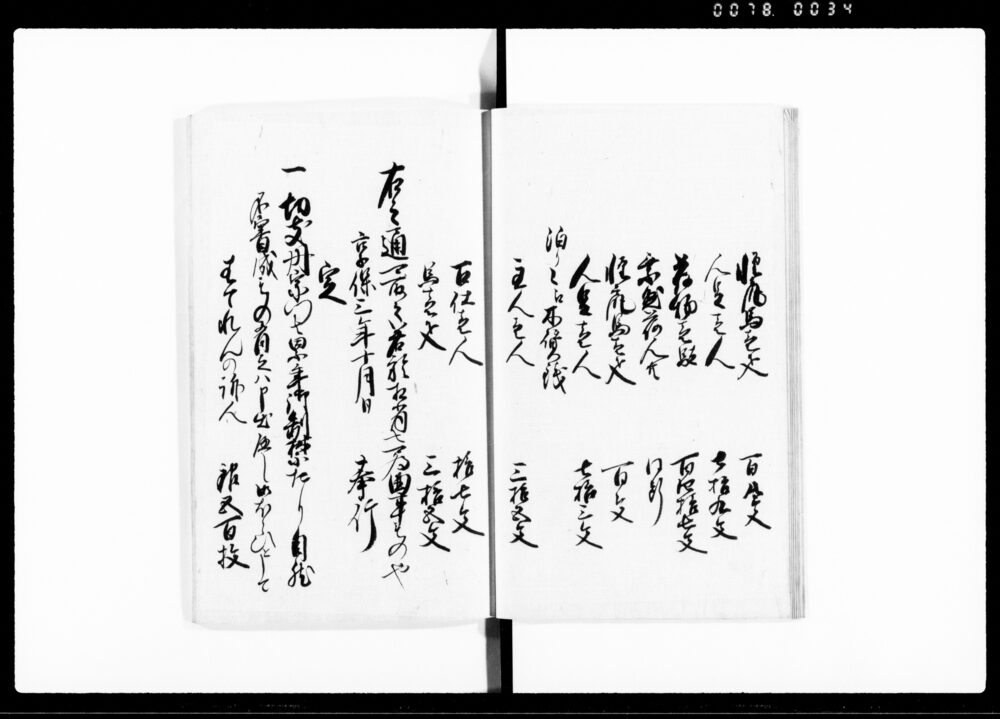 0078. 0034
軽尻馬壱疋　百文
人足壱人　七拾九文
荷物壱駄　百四拾七文
乗懸荷人共　同断
軽尻馬壱疋　百文
人足壱人　七拾三文
泊りニ而木賃銭
主人壱人　三拾五文
召仕壱人　拾七文
馬壱疋　三拾五文
右之通可取之若於相背者可為曲事もの也
享保三年十月日　奉行
定
一切支丹宗門者累年御制禁たり自然
不審成もの有之ハ申出へし御ほうひとして
はてれんの訴人　銀五百枚